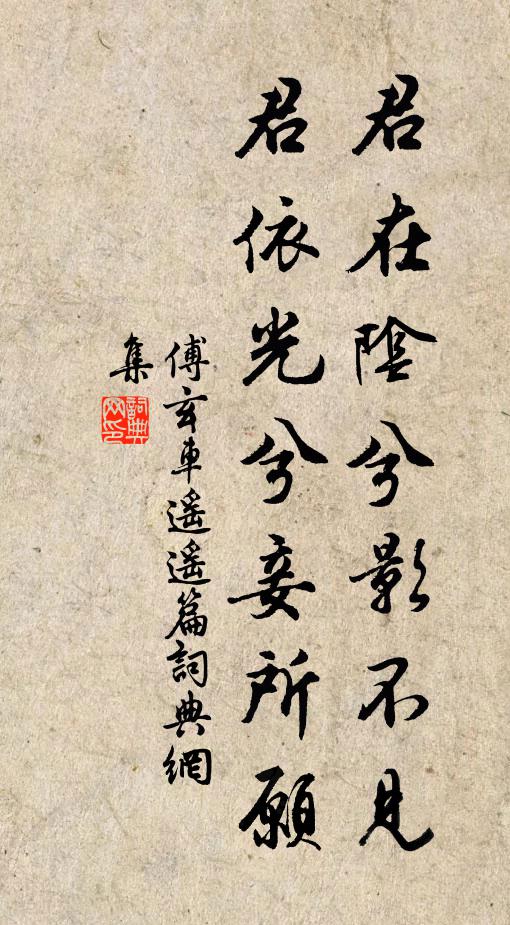 君在陰兮影不見
君依光兮妾所願
傅玄車遥遥篇詞典網
集
詞典
网印